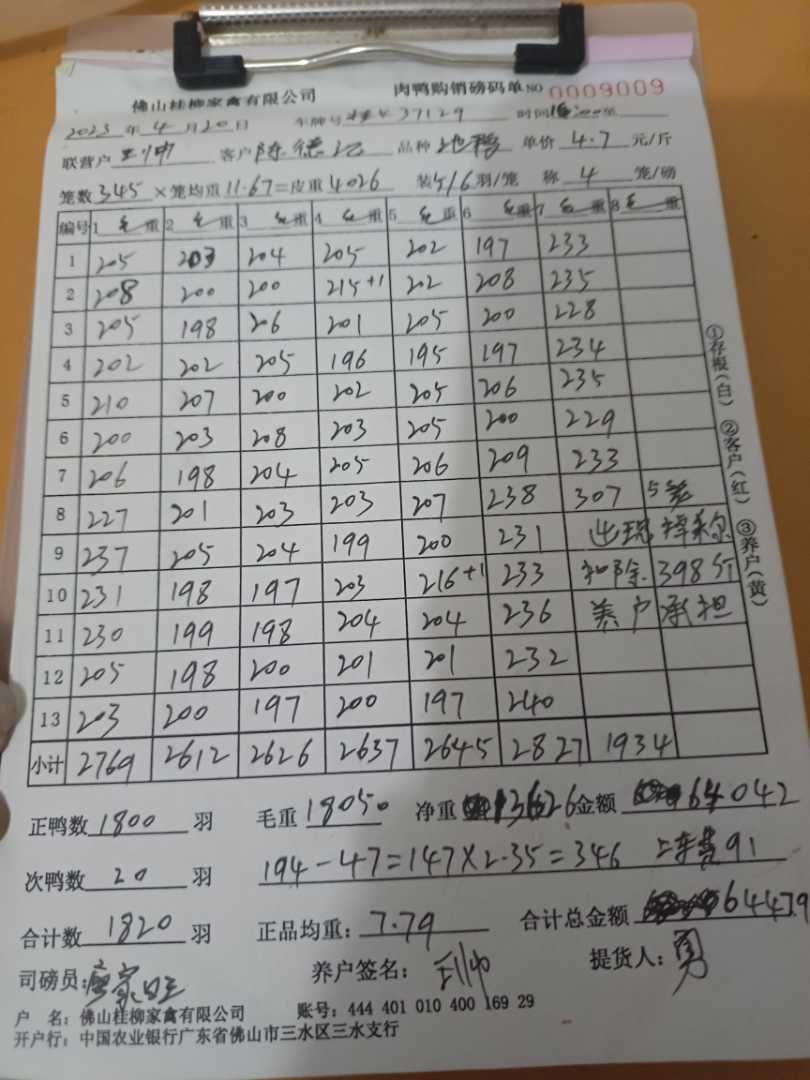 佛山桂柳家禽有限公司 肉鸭购销磅码单NO 0009009
2023 年 4 月 20 日 车牌号 37129 时间
联营户 客户 陈德 品种 单价 4.7 元/斤
笼数 345 ×笼均重 11.67=皮重 4026 装5/6羽/笼 称 4 笼/磅
编号 1 毛重 2 毛重 3 毛重 4 毛重 5 毛重 6 毛重 7 毛重 8 毛重
1 205 203 204 205 202 197 233
2 208 200 200 215+1 202 208 235
3 205 198 206 201 205 200 228
4 202 202 205 196 195 197 234
5 210 207 200 202 205 206 235
6 200 203 208 203 205 200 229
7 206 198 204 205 206 209 233
8 227 201 203 203 207 238 307 5笼
9 237 205 204 199 200 231 出现掉
10 231 198 197 203 216+1 233 扣除 398斤
11 230 199 198 204 204 236 养户承担
12 205 198 200 201 201 232
13 203 200 197 200 197 240
小计 2769 2612 2626 2637 2645 2827 1934
正鸭数 1800 羽 毛重 18050 净重 13626 金额 64042
次鸭数 20 羽 194-47=147×2.35=346 上车费91
合计数 1820 羽 正品均重: 7.79 合计总金额 64479
司磅员: 养户签名: 提货人: 勇
户 名: 佛山桂柳家禽有限公司 账号: 444 401 010 400 169 29
开户行: 中国农业银行广东省佛山市三水区三水支行
①存根(白) ②客户(红) ③养户(黄)